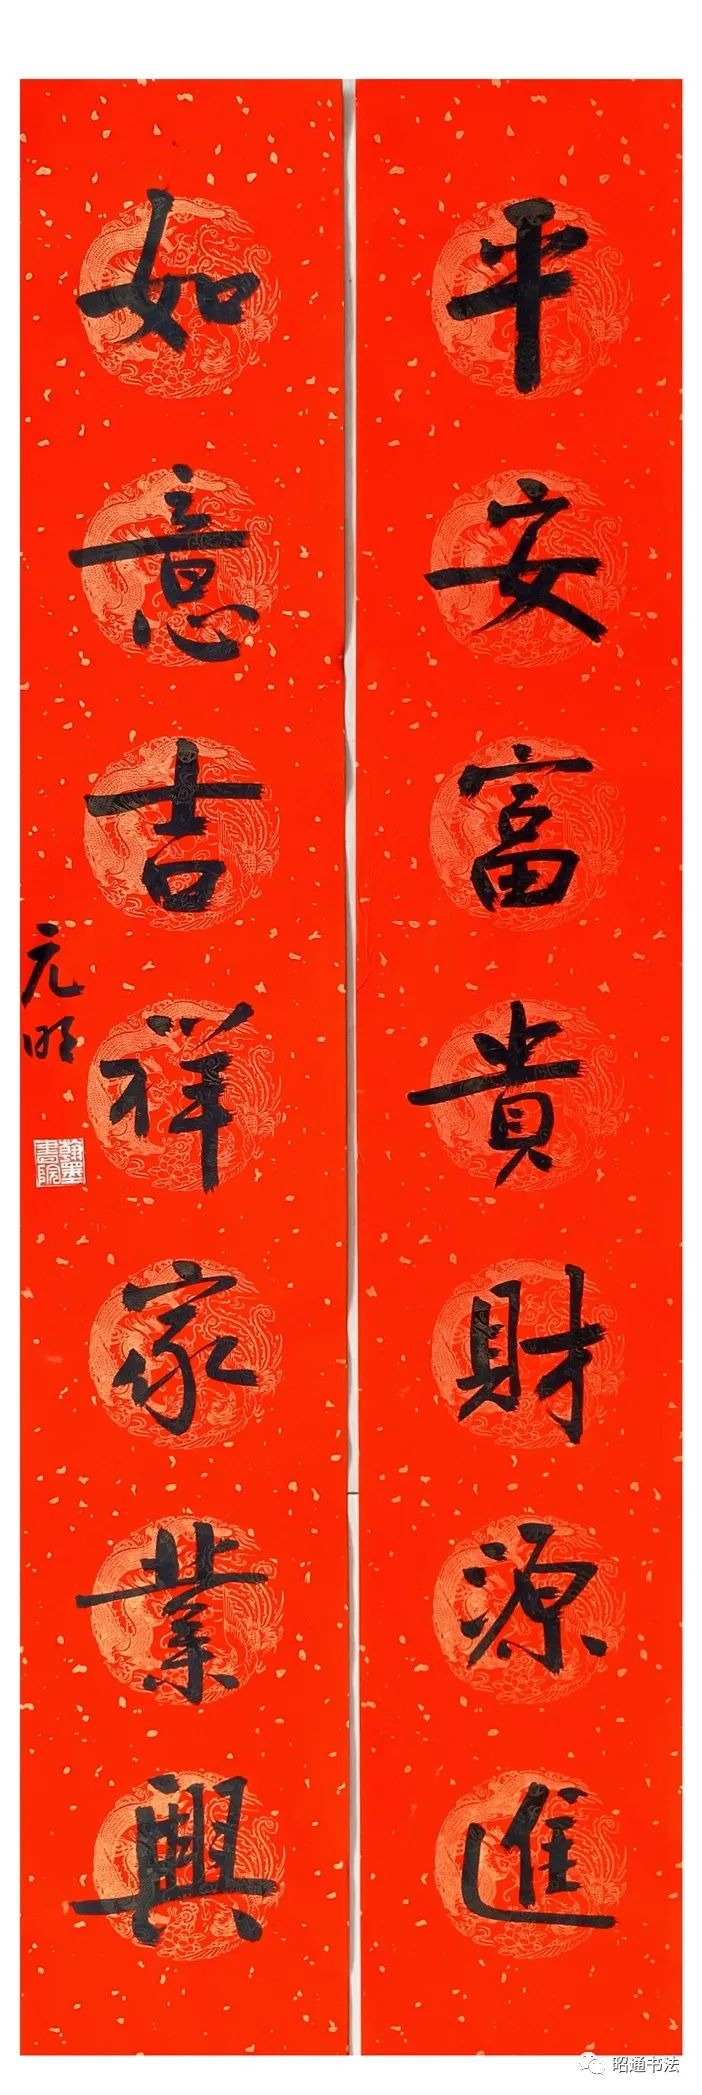 平安富貴財源進
如意吉祥家業興
元明
翰墨書院
昭通书法